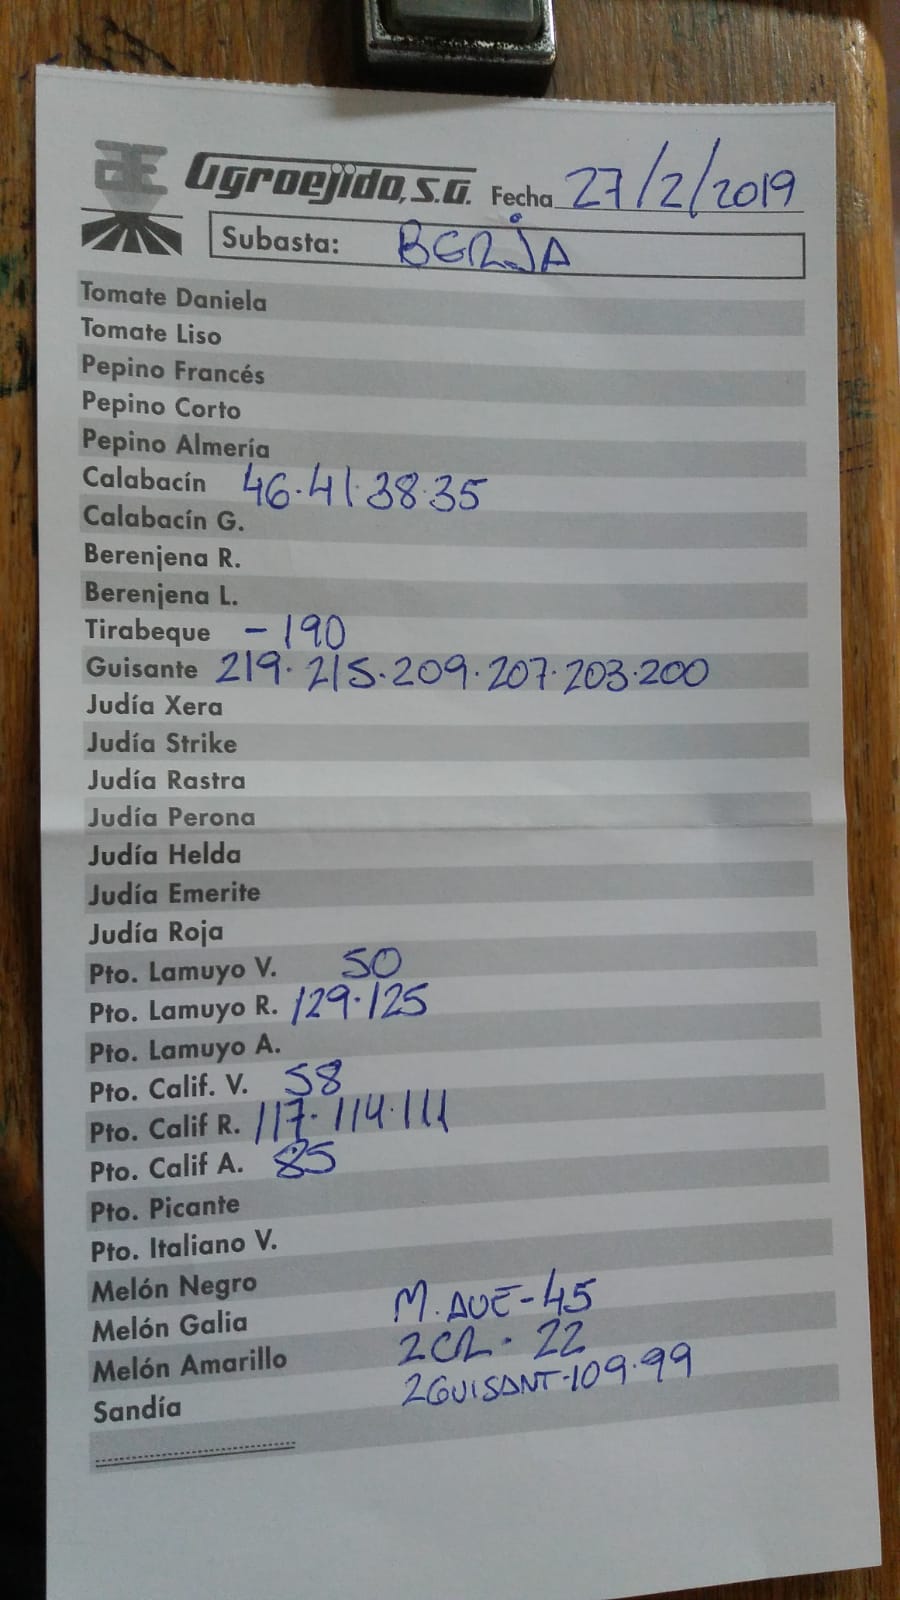 Agroejido, S.A. Fecha 27/2/2019
Subasta: BERJA
Tomate Daniela
Tomate Liso
Pepino Francés
Pepino Corto
Pepino Almería
Calabacín 46.41.38.35
Calabacín G.
Berenjena R.
Berenjena L.
Tirabeque - 190
Guisante 219.215.209.207.203.200
Judía Xera
Judía Strike
Judía Rastra
Judía Perona
Judía Helda
Judía Emerite
Judía Roja
Pto. Lamuyo V. 50
Pto. Lamuyo R. 129.125
Pto. Lamuyo A.
Pto. Calif. V. 58
Pto. Calif R. 117.114.111
Pto. Calif A. 85
Pto. Picante
Pto. Italiano V.
Melón Negro
Melón Galia M. AVE-45
Melón Amarillo 2CR- 22
Sandía 2GUISANT-109.99